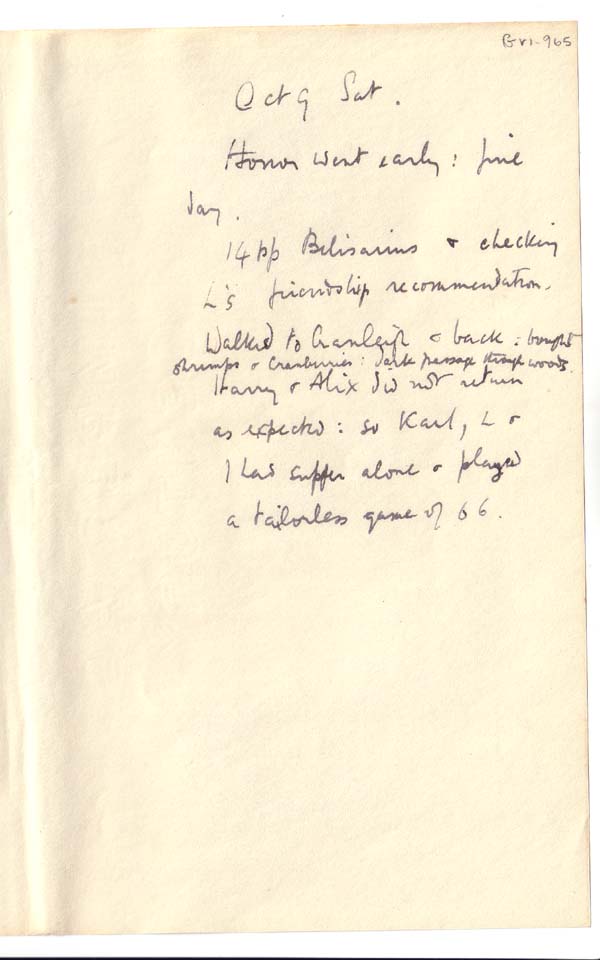 GVI-965
Oct 9 Sat.
Honor went early: fine
day.
14 pp Belisarius & checking
L's friendship recommendation.
Walked to Cranleigh & back: bought
shrimps & Cranberries: dark passage through woods.
Harry & Alix did not return
as expected: so Karl, L &
I had supper alone & played
a tailorless game of 66.